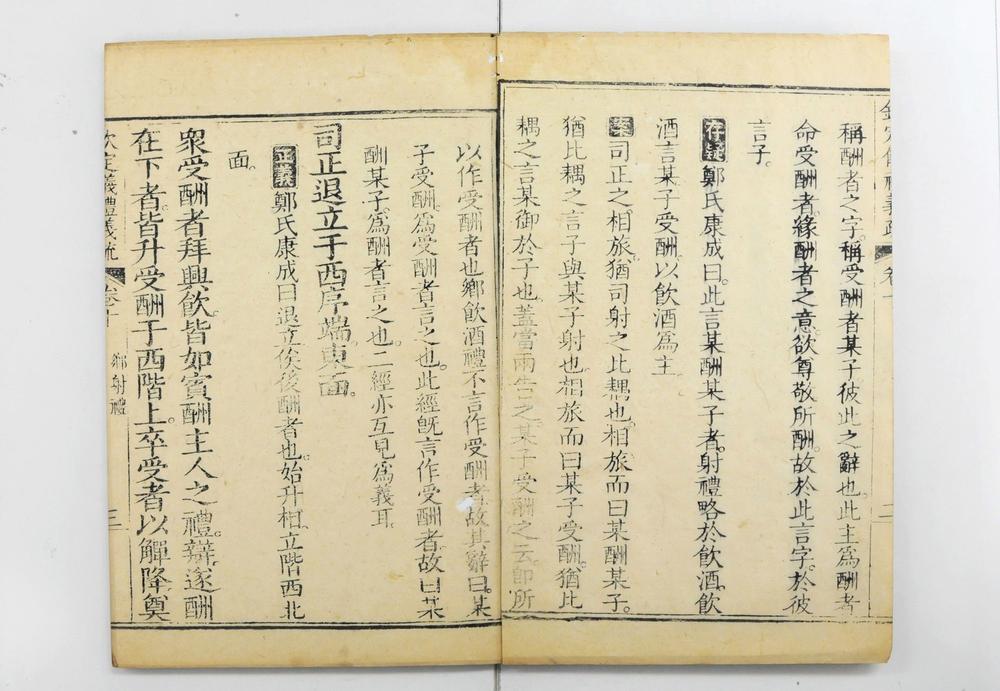 稱酬者之字。稱受酬者某子彼此之辭也。此主爲酬者
命受酬者。緣酬者之意。欲尊敬所酬。故於此言字。於彼
言子。
存疑鄭氏康成曰。此言某酬某子者。射禮略於飲酒。飲
酒言某子受酬。以飲酒爲主
案司正之相旅。猶司射之比耦也。相旅而曰某酬某子。
猶比耦之言子與某子射也。相旅而曰某子受酬。猶比
耦之言某御於子也。蓋當兩告之。某子受酬之云。卽所
以作受酬者也鄉飲酒禮不言作受酬者。故其辭曰。某
子受酬。爲受酬者言之也。此經旣言作受酬者。故曰某
酬某子。爲酬者言之也。二經亦互見爲義耳。
司正退立于西序端東面。
正義鄭氏康成曰退立俟後酬者也。始升相。立階西北
面。
衆受酬者拜興飲。皆如賓酬主人之禮。辯。遂酬
在下者。皆升受酬于西階上。卒受者以觶降奠
欽定義禮義疏 卷十 鄉射禮 三